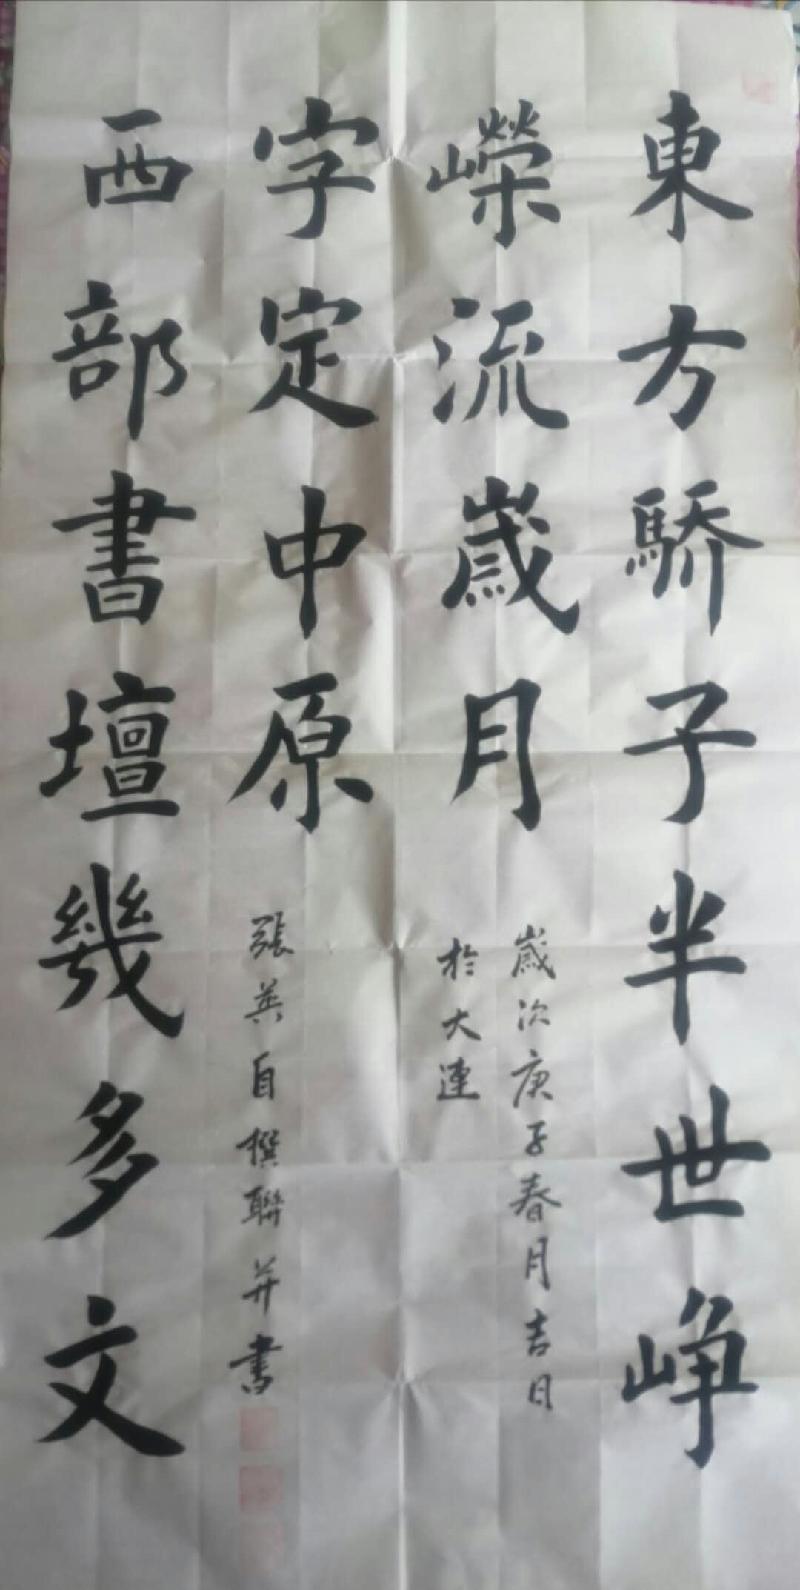 東方驕子半世崢
嶸流歲月
歲次庚子春月吉日
於大連
西部書壇幾多文
字定中原
張英自撰聯并書